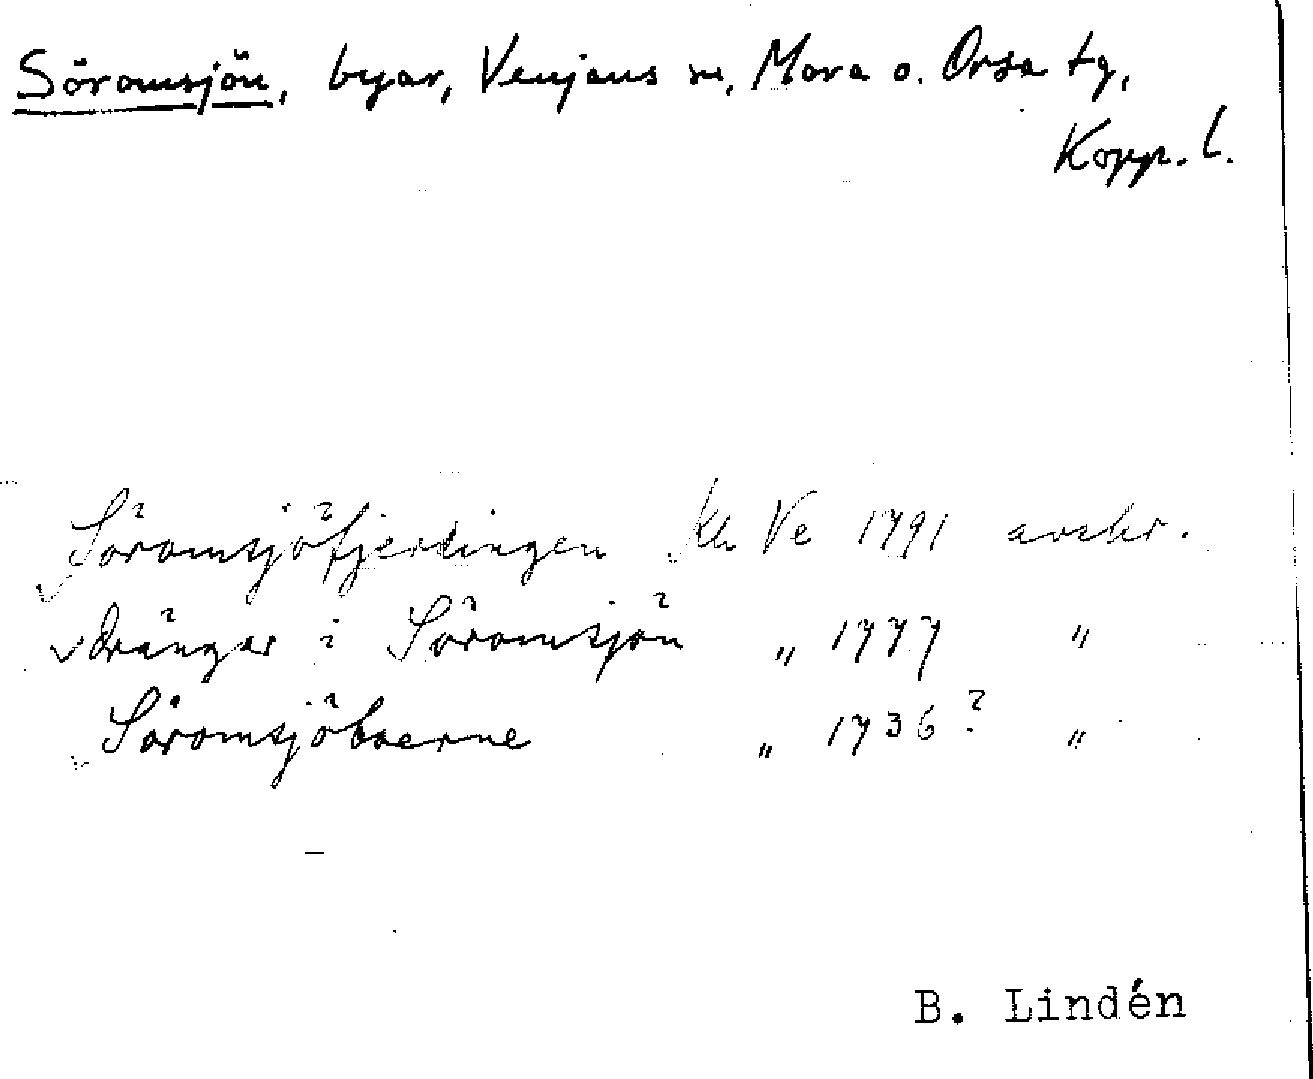 Söromsjön, byar, Venjans sn, Mora o. Orsa tg,
Kopp. l.
Söromsjöfjerdingen Kh Ve 1791 avskr.
drängar i Söromsjön „ 1777 "
Söromsjöboerne „ 1736? "
B. Lindén